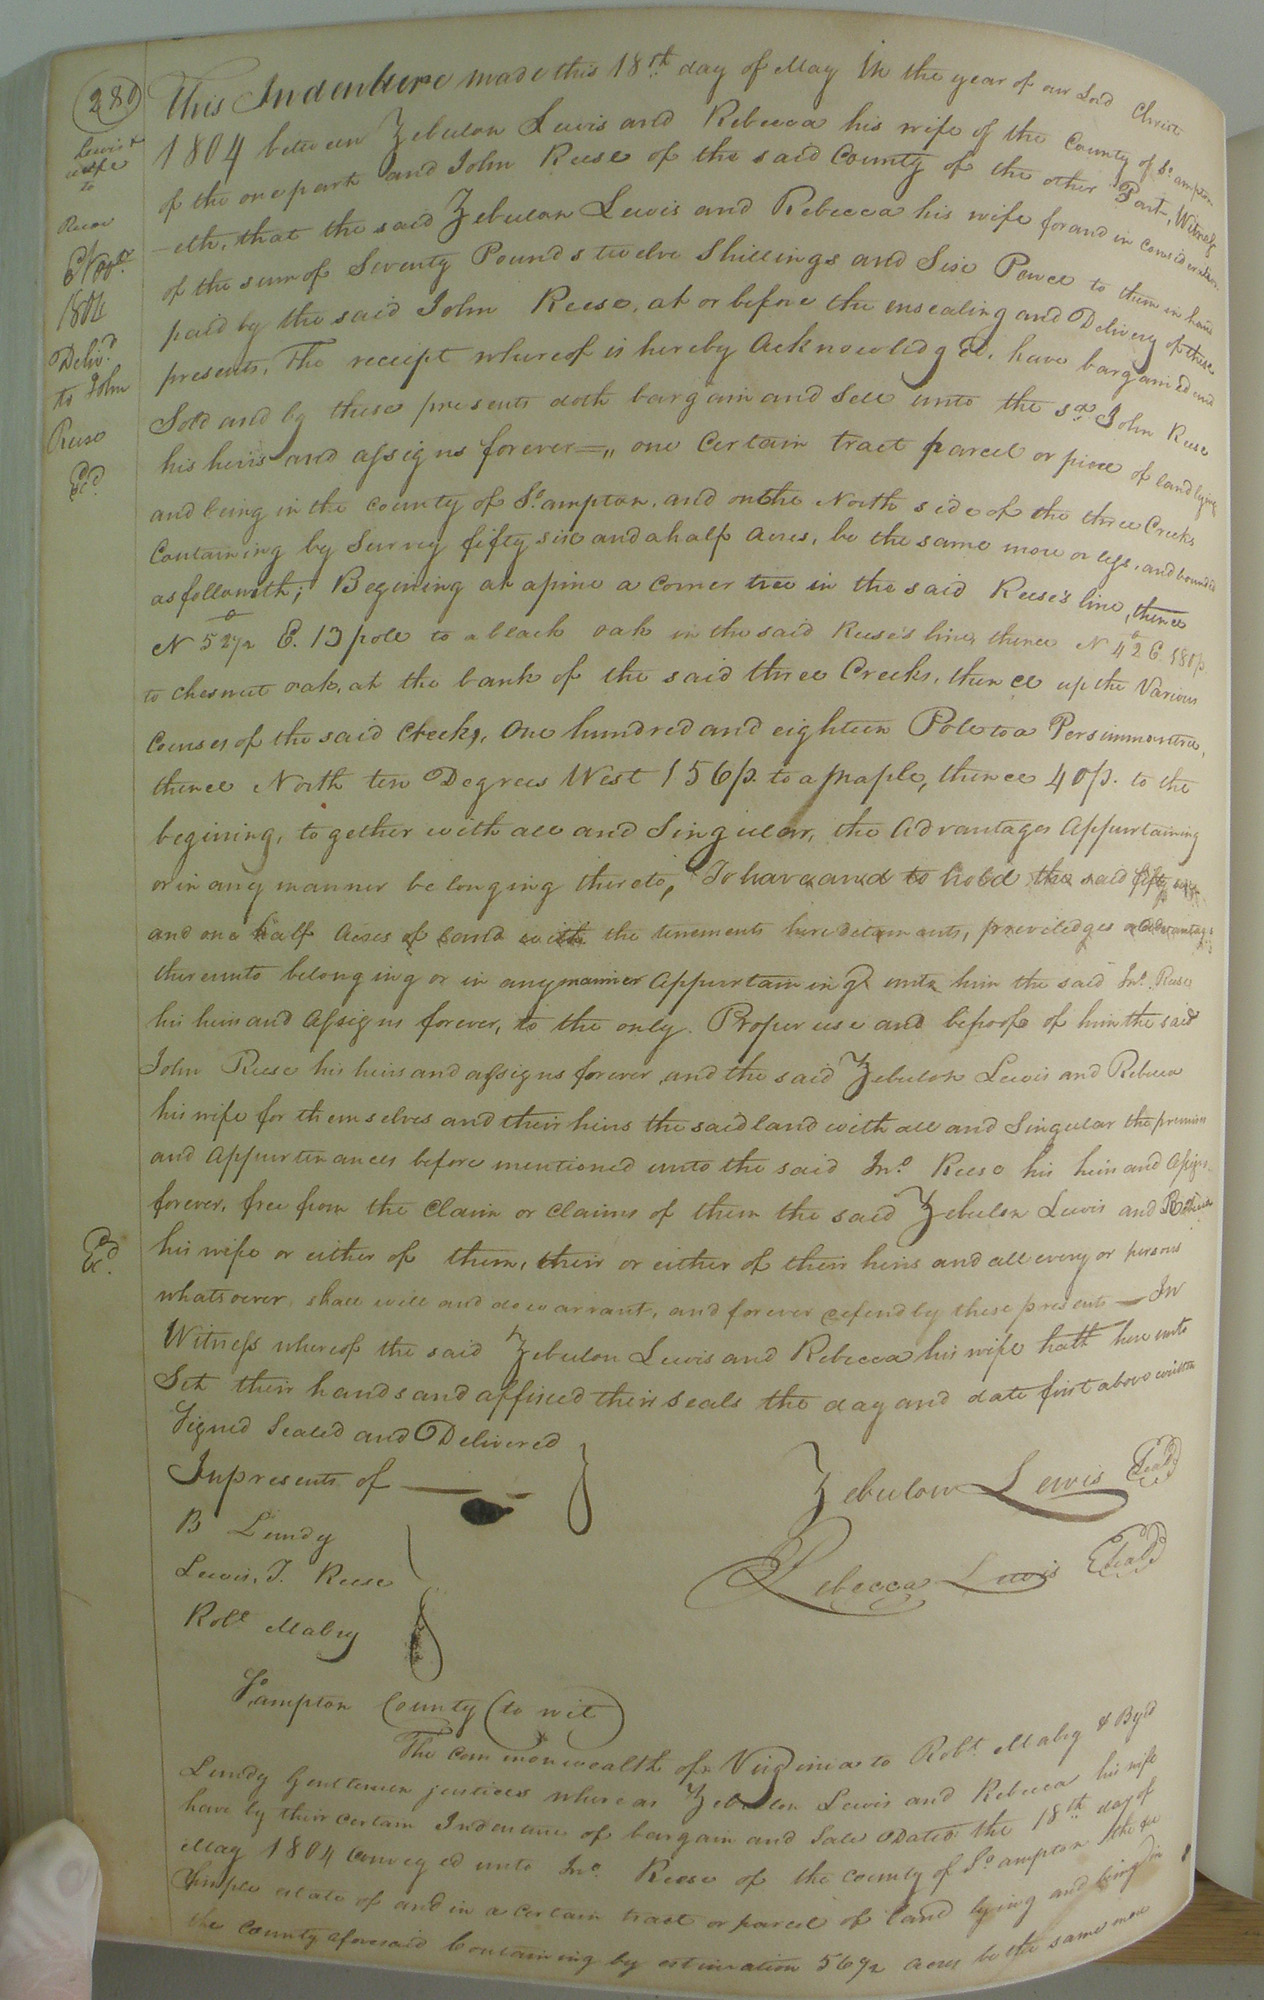 280
Lewis &
wife
to
Reese
1804
Deliv.d
to John
Reese
This Indenture made this 18th day of May In the year of our Lord Christ
1804 between Zebulon Lewis and Rebecca his wife of the County of So.ampton
of the one part and John Reese of the said County of the other Part, Witness
-eth, that the said Zebulon Lewis and Rebecca his wife for and in consideration
of the sum of Seventy Pounds twelve Shillings and Six Pence to them in hand
paid by the said John Reese, at or before the ensealing and Delivery of these
presents, The receipt whereof is hereby Acknowledged, have bargained and
Sold and by these presents doth bargain and Sell unto the sd. John Reese
his heirs and assigns forever =,, one Certain tract parcel or piece of land lying
and being in the county of So.ampton, and on the North side of the three Creeks
Containing by Survey fifty six and a half Acres, be the same more or less, and bounded
as followeth; Begining at a pine a corner tree in the said Reese's line, thence
N 52 1/2 E. 13 pole to a black oak in the said Reese's line, thence N 42 E 181 p.
to chesnut oak, at the bank of the said three Creeks, thence up the Various
Courses of the said Creeks, One hundred and eighteen Pole to a Persimmon tree,
thence North ten Degrees West 156 p. to a maple, thence 40 p. to the
begining, together with all and Singular, the Advantages Appurtaining
or in any manner belonging thereto, To have and to hold the said fifty six
and one half Acres of Land with the tenements hereditaments, preveledges advantages
thereunto belonging or in any manner Appurtaining unto him the said Jno. Reese
his heirs and Assigns forever, to the only Proper use and behoofe of him the said
John Reese his heirs and assigns forever, and the said Zebulon Lewis and Rebecca
his wife for themselves and their heirs the said land with all and Singular the premises
and Appurtenances before mentioned unto the said Jno. Reese his heirs and Assigns
forever, free from the Claim or Claims of them the said Zebulon Lewis and Rebecca
his wife or either of them, their or either of their heirs and all every or persons
whatsoever shall will and do warrant, and forever defend by these presents — In
Witness whereof the said Zebulon Lewis and Rebecca his wife hath hereunto
Set their hands and affixed their Seals the day and date first above written
Signed Sealed and Delivered
In presents of
Zebulon Lewis Seal
B Lundy
Rebecca Lewis Seal
Lewis. T. Reese
Robt Mabry
So.ampton County (to wit)
The commonwealth of Virginia to Robt. Mabry & Byrd
Lundy Gentlemen justices whereas Zebulon Lewis and Rebecca his wife
have by their certain Indenture of bargain and Sale Dated the 18th day of
May 1804 Conveyed unto Jno. Reese of the county of So.ampton the fee
Simple estate of and in a certain tract or parcel of land lying and being in
the county aforesaid Containing by estimation 56 1/2 acres be the same more